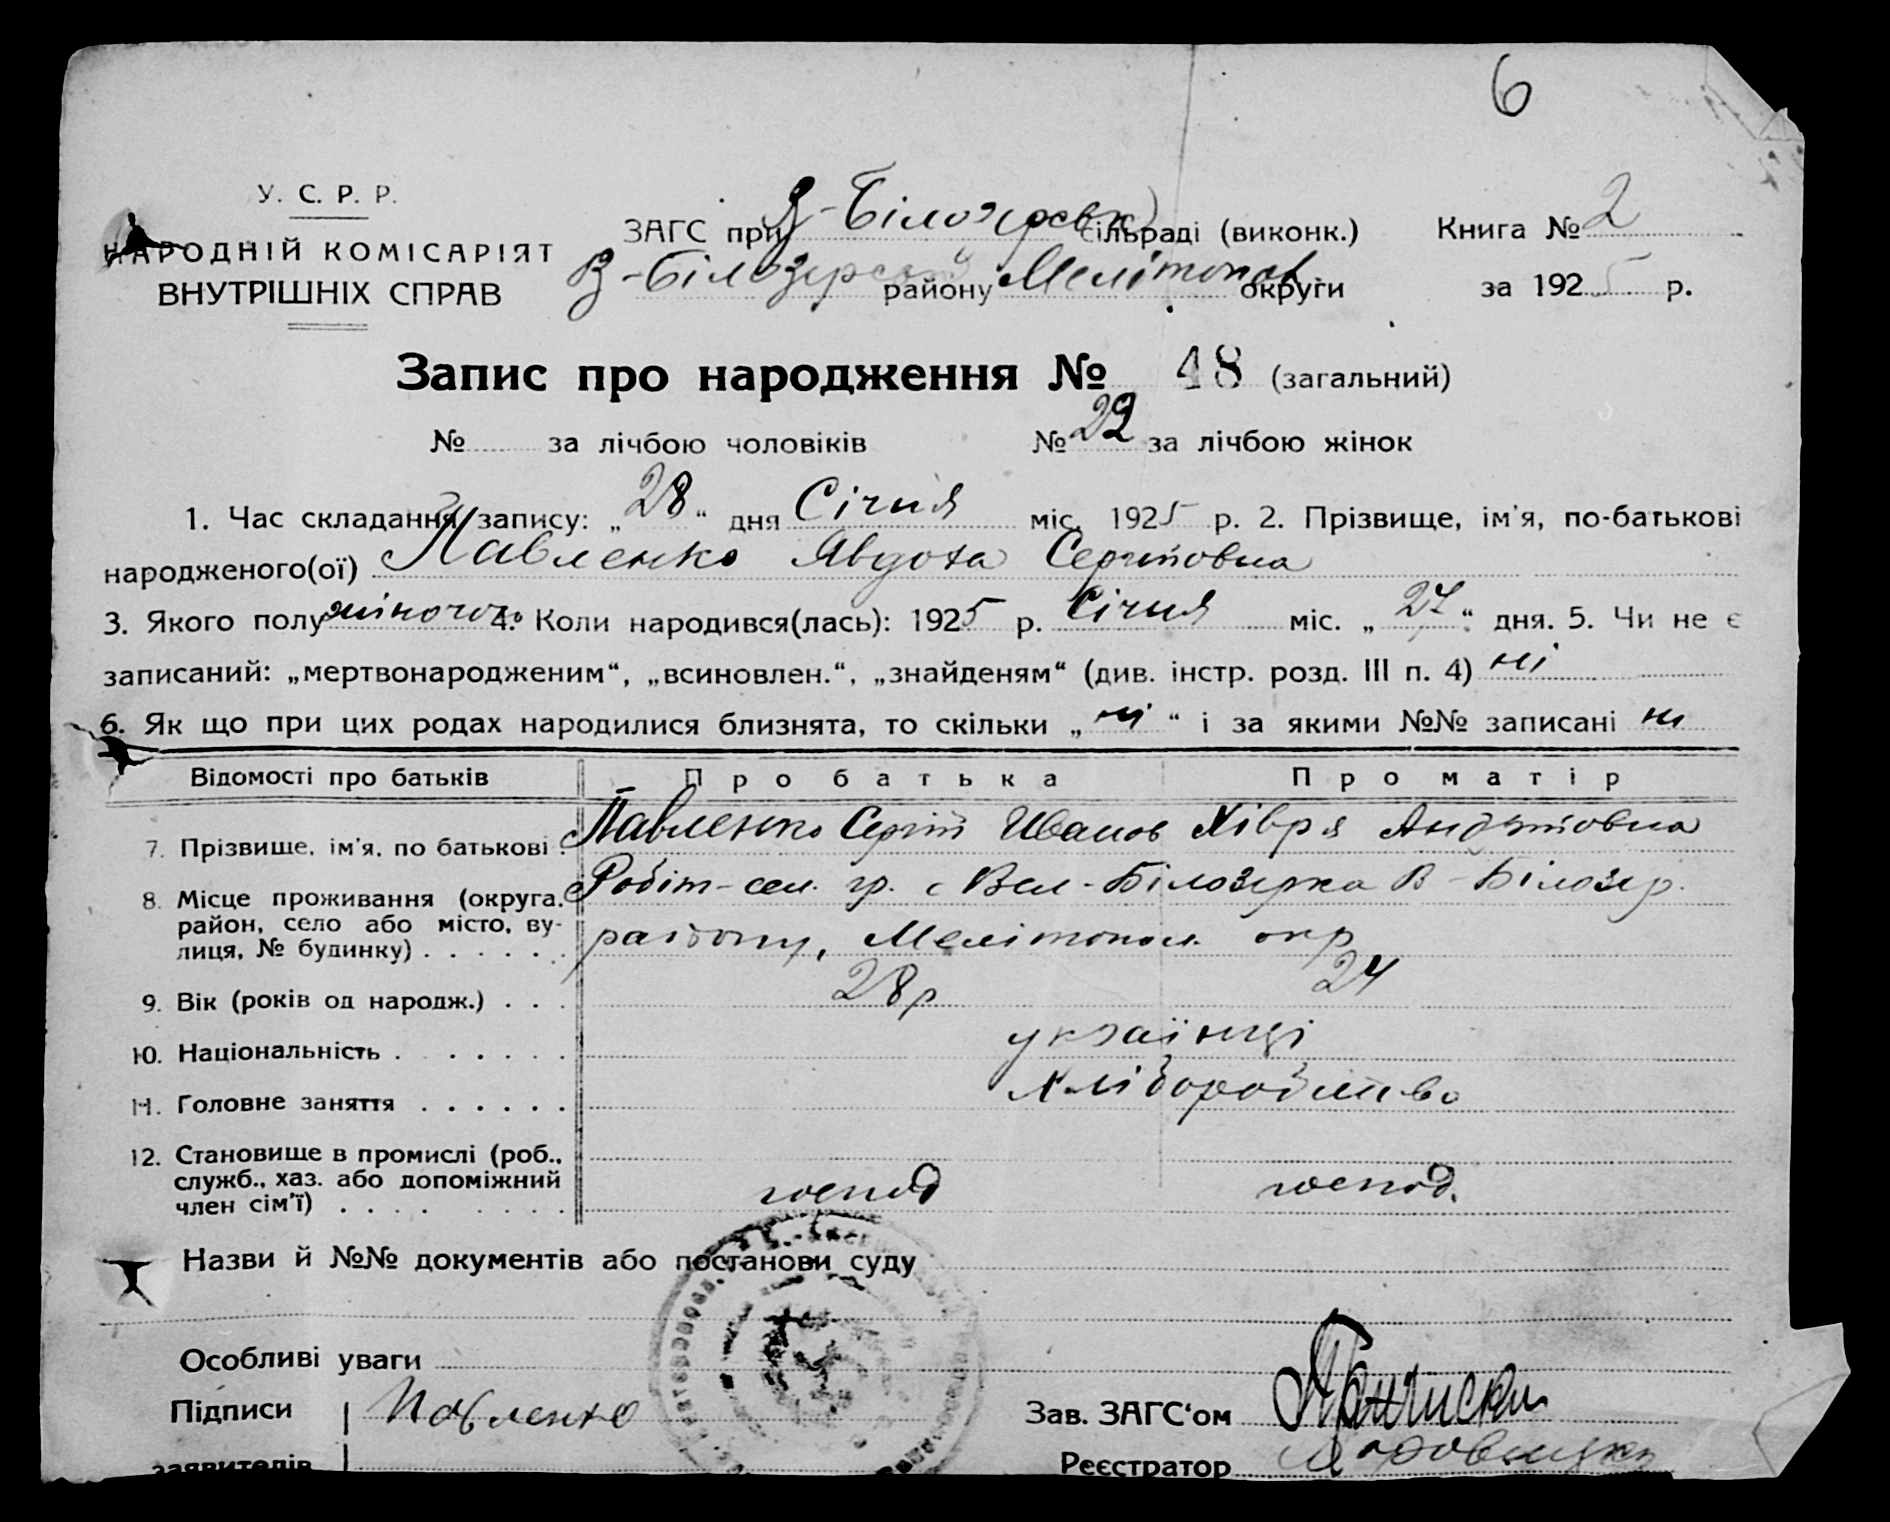 6
У. С. Р. Р.
НАРОДНІЙ КОМІСАРІЯТ
ВНУТРІШНІХ СПРАВ
ЗАГС при В-Білозерськ сільраді (виконк.) Книга № 2
В-Білозерськ району Мелітопол. округи за 1925 р.
Запис про народження № 48 (загальний)
№ за лічбою чоловіків № 22 за лічбою жінок
1. Час складання запису: „28“ дня Січня міс. 1925 р. 2. Прізвище, ім'я, по-батькові
народженого(ої) Павленко Явдоха Сергіївна
3. Якого полу жіночого 4. Коли народився(лась): 1925 р. Січня міс. „27“ дня. 5. Чи не є
записаний: „мертвонародженим“, „всиновлен.“, „знайденям“ (див. інстр. розд. III п. 4) ні
6. Як що при цих родах народилися близнята, то скільки „ні“ і за якими №№ записані ні
Відомості про батьків Про батька Про матір
7. Прізвище, ім'я, по батькові Павленко Сергій Иванов Хівря
8. Місце проживання (округа, район, село або місто, вулиця, № будинку) Робіт-сел. гр. с Вел-Білозерка В-Білозер.
району, Мелітопол. окр
9. Вік (років од народж.) 28 р 24
10. Національність українці
11. Головне заняття хліборобство
12. Становище в промислі (роб., служб., хаз. або допоміжний член сім'ї) господ господ.
Назви й №№ документів або постанови суду
Особливі уваги
Підписи Павленко Зав. ЗАГС'ом
заявителів Реєстратор